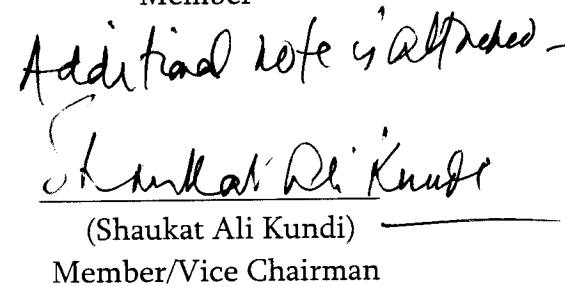 Member
Additional note is attached –
Shaukat Ali Kundi
(Shaukat Ali Kundi)
Member/Vice Chairman